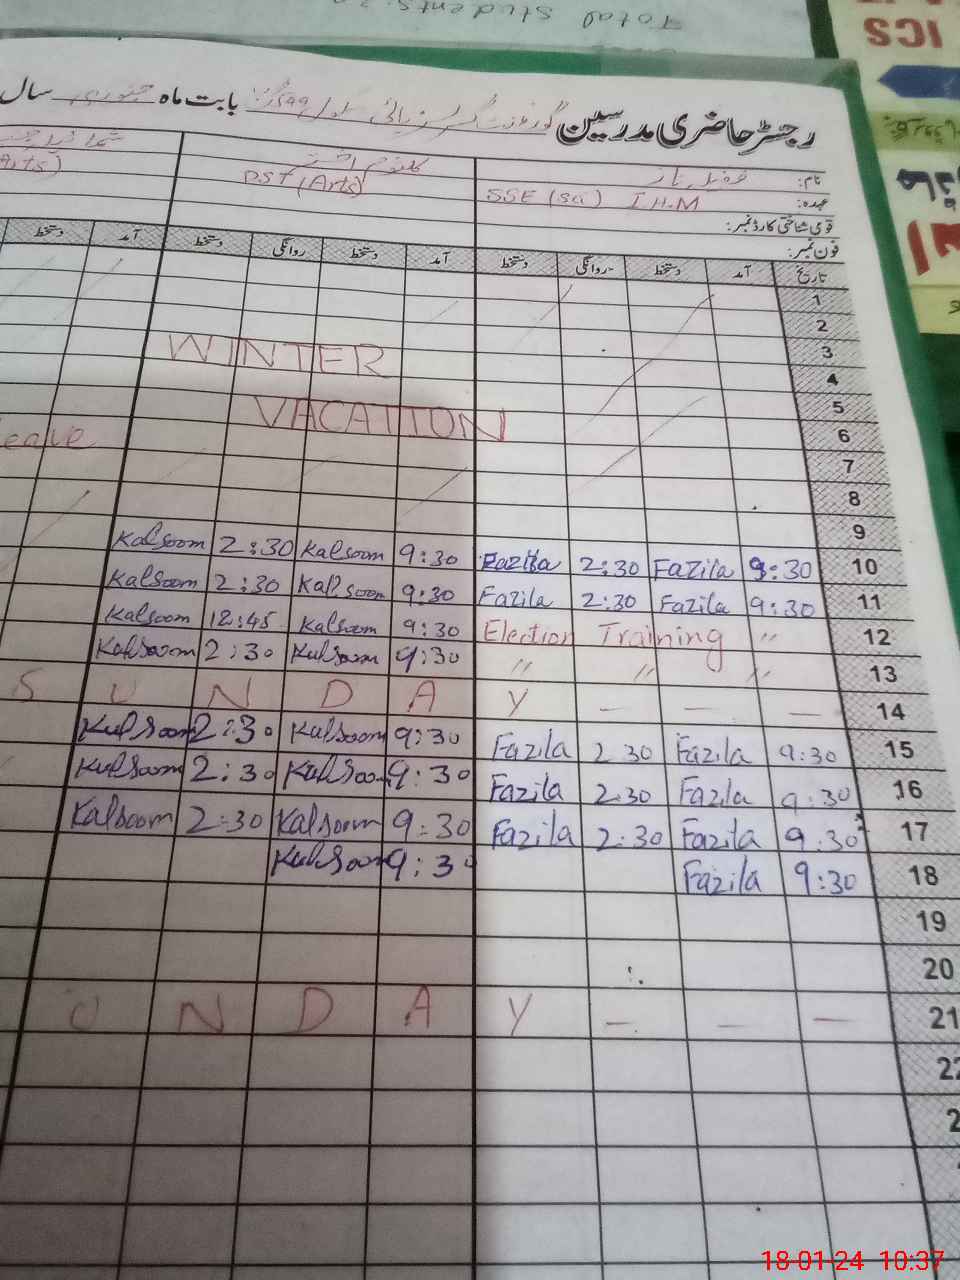 Total students
ICS
رجسٹر حاضری مدرسین گورنمنٹ گرلز ہائی سکول بابت ماہ جنوری سال
نام:
کلثوم اختر
عہدہ: SSE (Sci) I.H.M
DST (Arts)
Arts)
قومی شناختی کارڈ نمبر:
فون نمبر:
تاریخ آمد دستخط روانگی دستخط آمد دستخط روانگی دستخط آمد دستخط
1
2
3
WINTER
4
5
VACATION
6
eave
7
8
9
Kalsoom 2:30 Kalsoom 9:30 Fazila 2:30 Fazila 9:30 10
Kalsoom 2:30 Kalsoom 9:30 Fazila 2:30 Fazila 9:30 11
Kalsoom 12:45 Kalsoom 9:30 Election Training " 12
Kalsoom 2:30 Kulsoom 9:30 " " " 13
S U N D A Y — — — 14
Kulsoom 2:30 Kulsoom 9:30 Fazila 2 30 Fazila 9:30 15
Kulsoom 2:30 Kulsoo 9:30 Fazila 2:30 Fazila 9:30 16
Kalsoom 2:30 Kalsoom 9:30 Fazila 2:30 Fazila 9:30 17
Kulsoom 9:30 Fazila 9:30 18
19
20
U N D A Y — — — 21
22
18-01-24 10:37